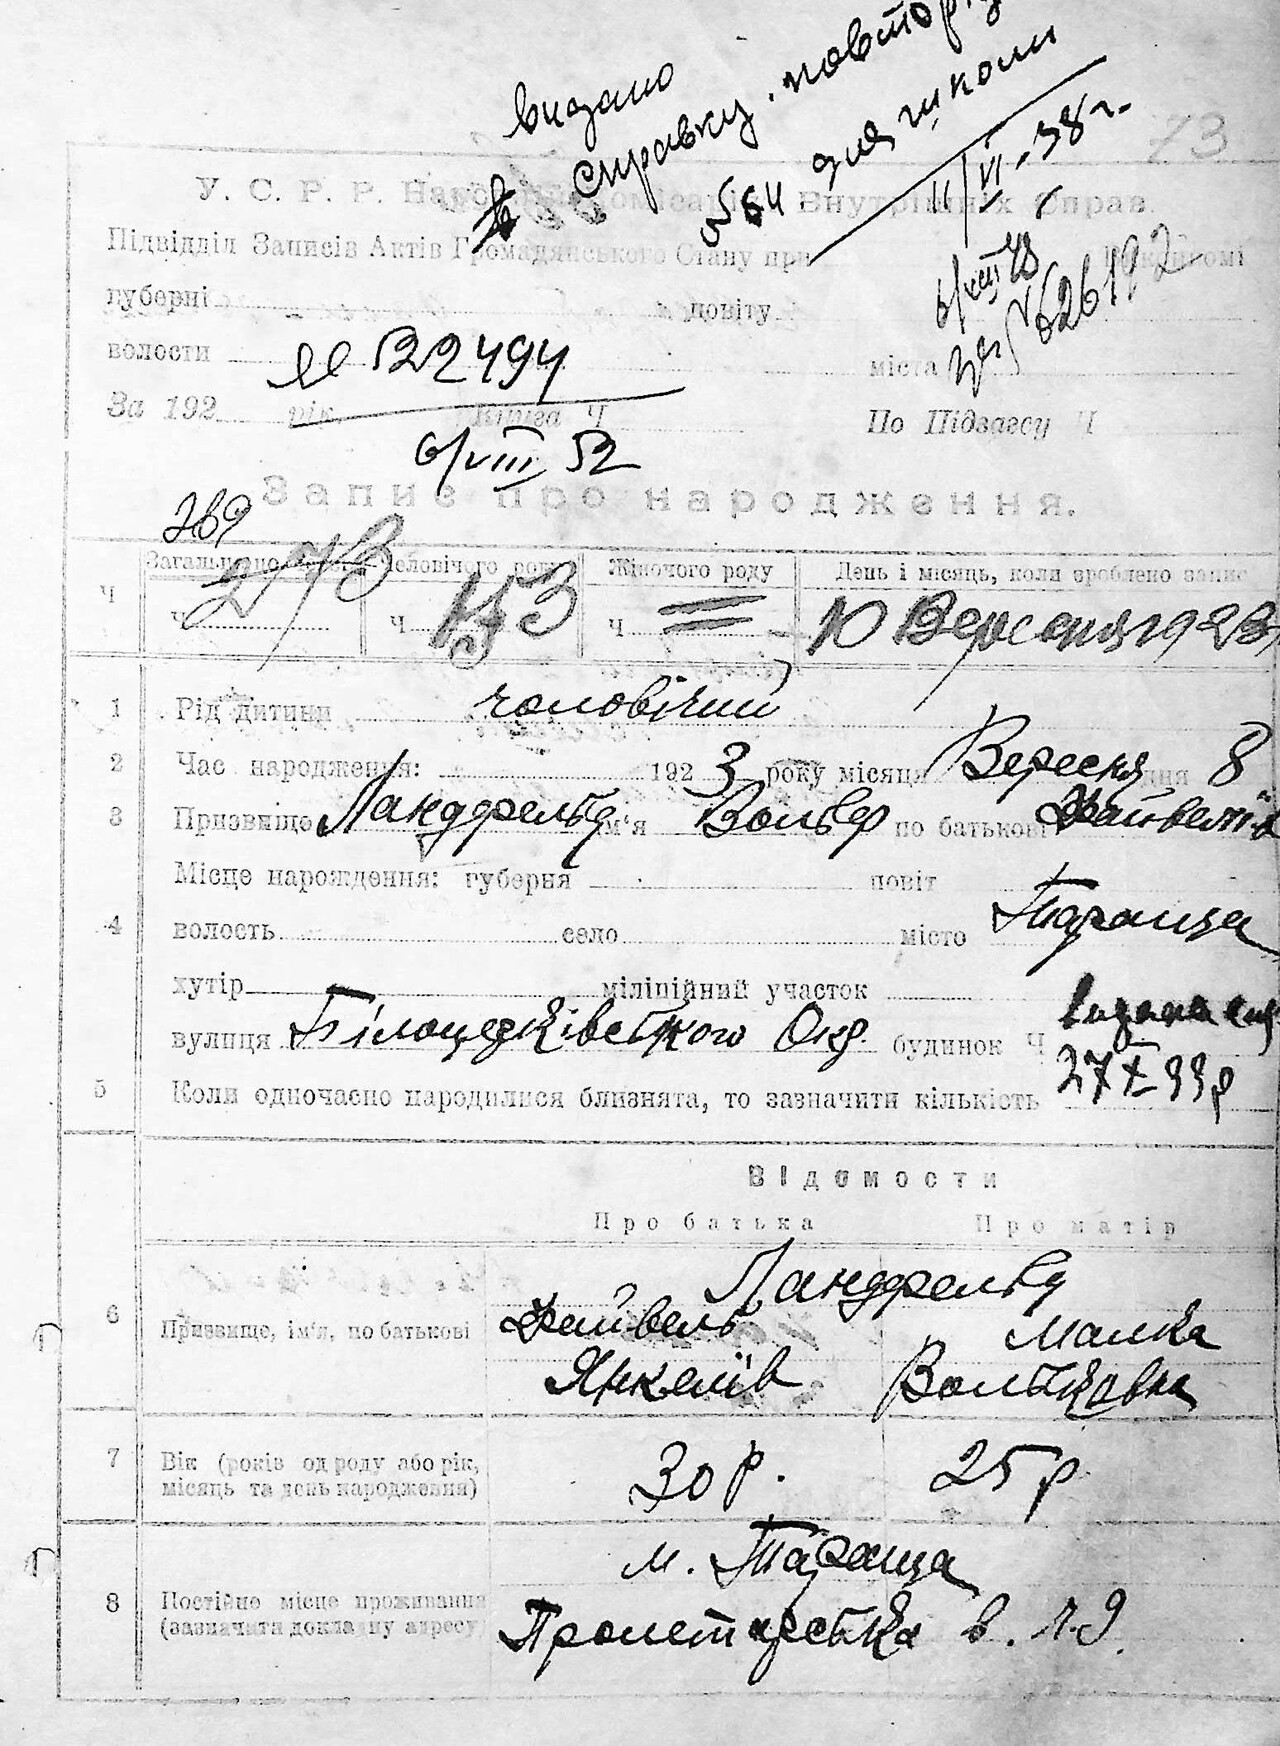 видано
справку. повторну
№ 564 для школи
11/VI-38 г.
73
У. С. Р. Р. Народній Комісаріят Внутрішніх Справ.
Підвідділ Записів Актів Громадянського Стану при
6/VIII 48
губерні повіту
№ 626192
волости М 522494 міста
За 192 рік Книга Ч По Підзагсу Ч
6/VIII 52
Запис про народження.
269
Загальне число Человічого роду Жіночого роду День і місяць, коли зроблено запис
Ч Ч 273 Ч 153 Ч = 10 Вересня 1923
1 Рід дитини чоловічий
2 Час народження: 1923 року місяця Вересня дня 8
3 Призвище Ландфельд ім'я Вольф по батькові Файвелів
Місце народження: губерня повіт
4 волость село місто Тараща
хутір міліційний участок
вулиця Білоцерківського Окр. будинок Ч
видана
27 X 33 р
5 Коли одночасно народилися близнята, то зазначити кількість
Відомости
Про батька Про матір
Ландфельд
6 Призвище, ім'я, по батькові Файвель Малка
Янкелів Вольковна
7 Вік (років од роду або рік, місяць та день народження) 30 р. 25 р
м. Тараща
8 Постійне місце проживання (зазначити докладну адресу) Пролетарська в. ч. 9